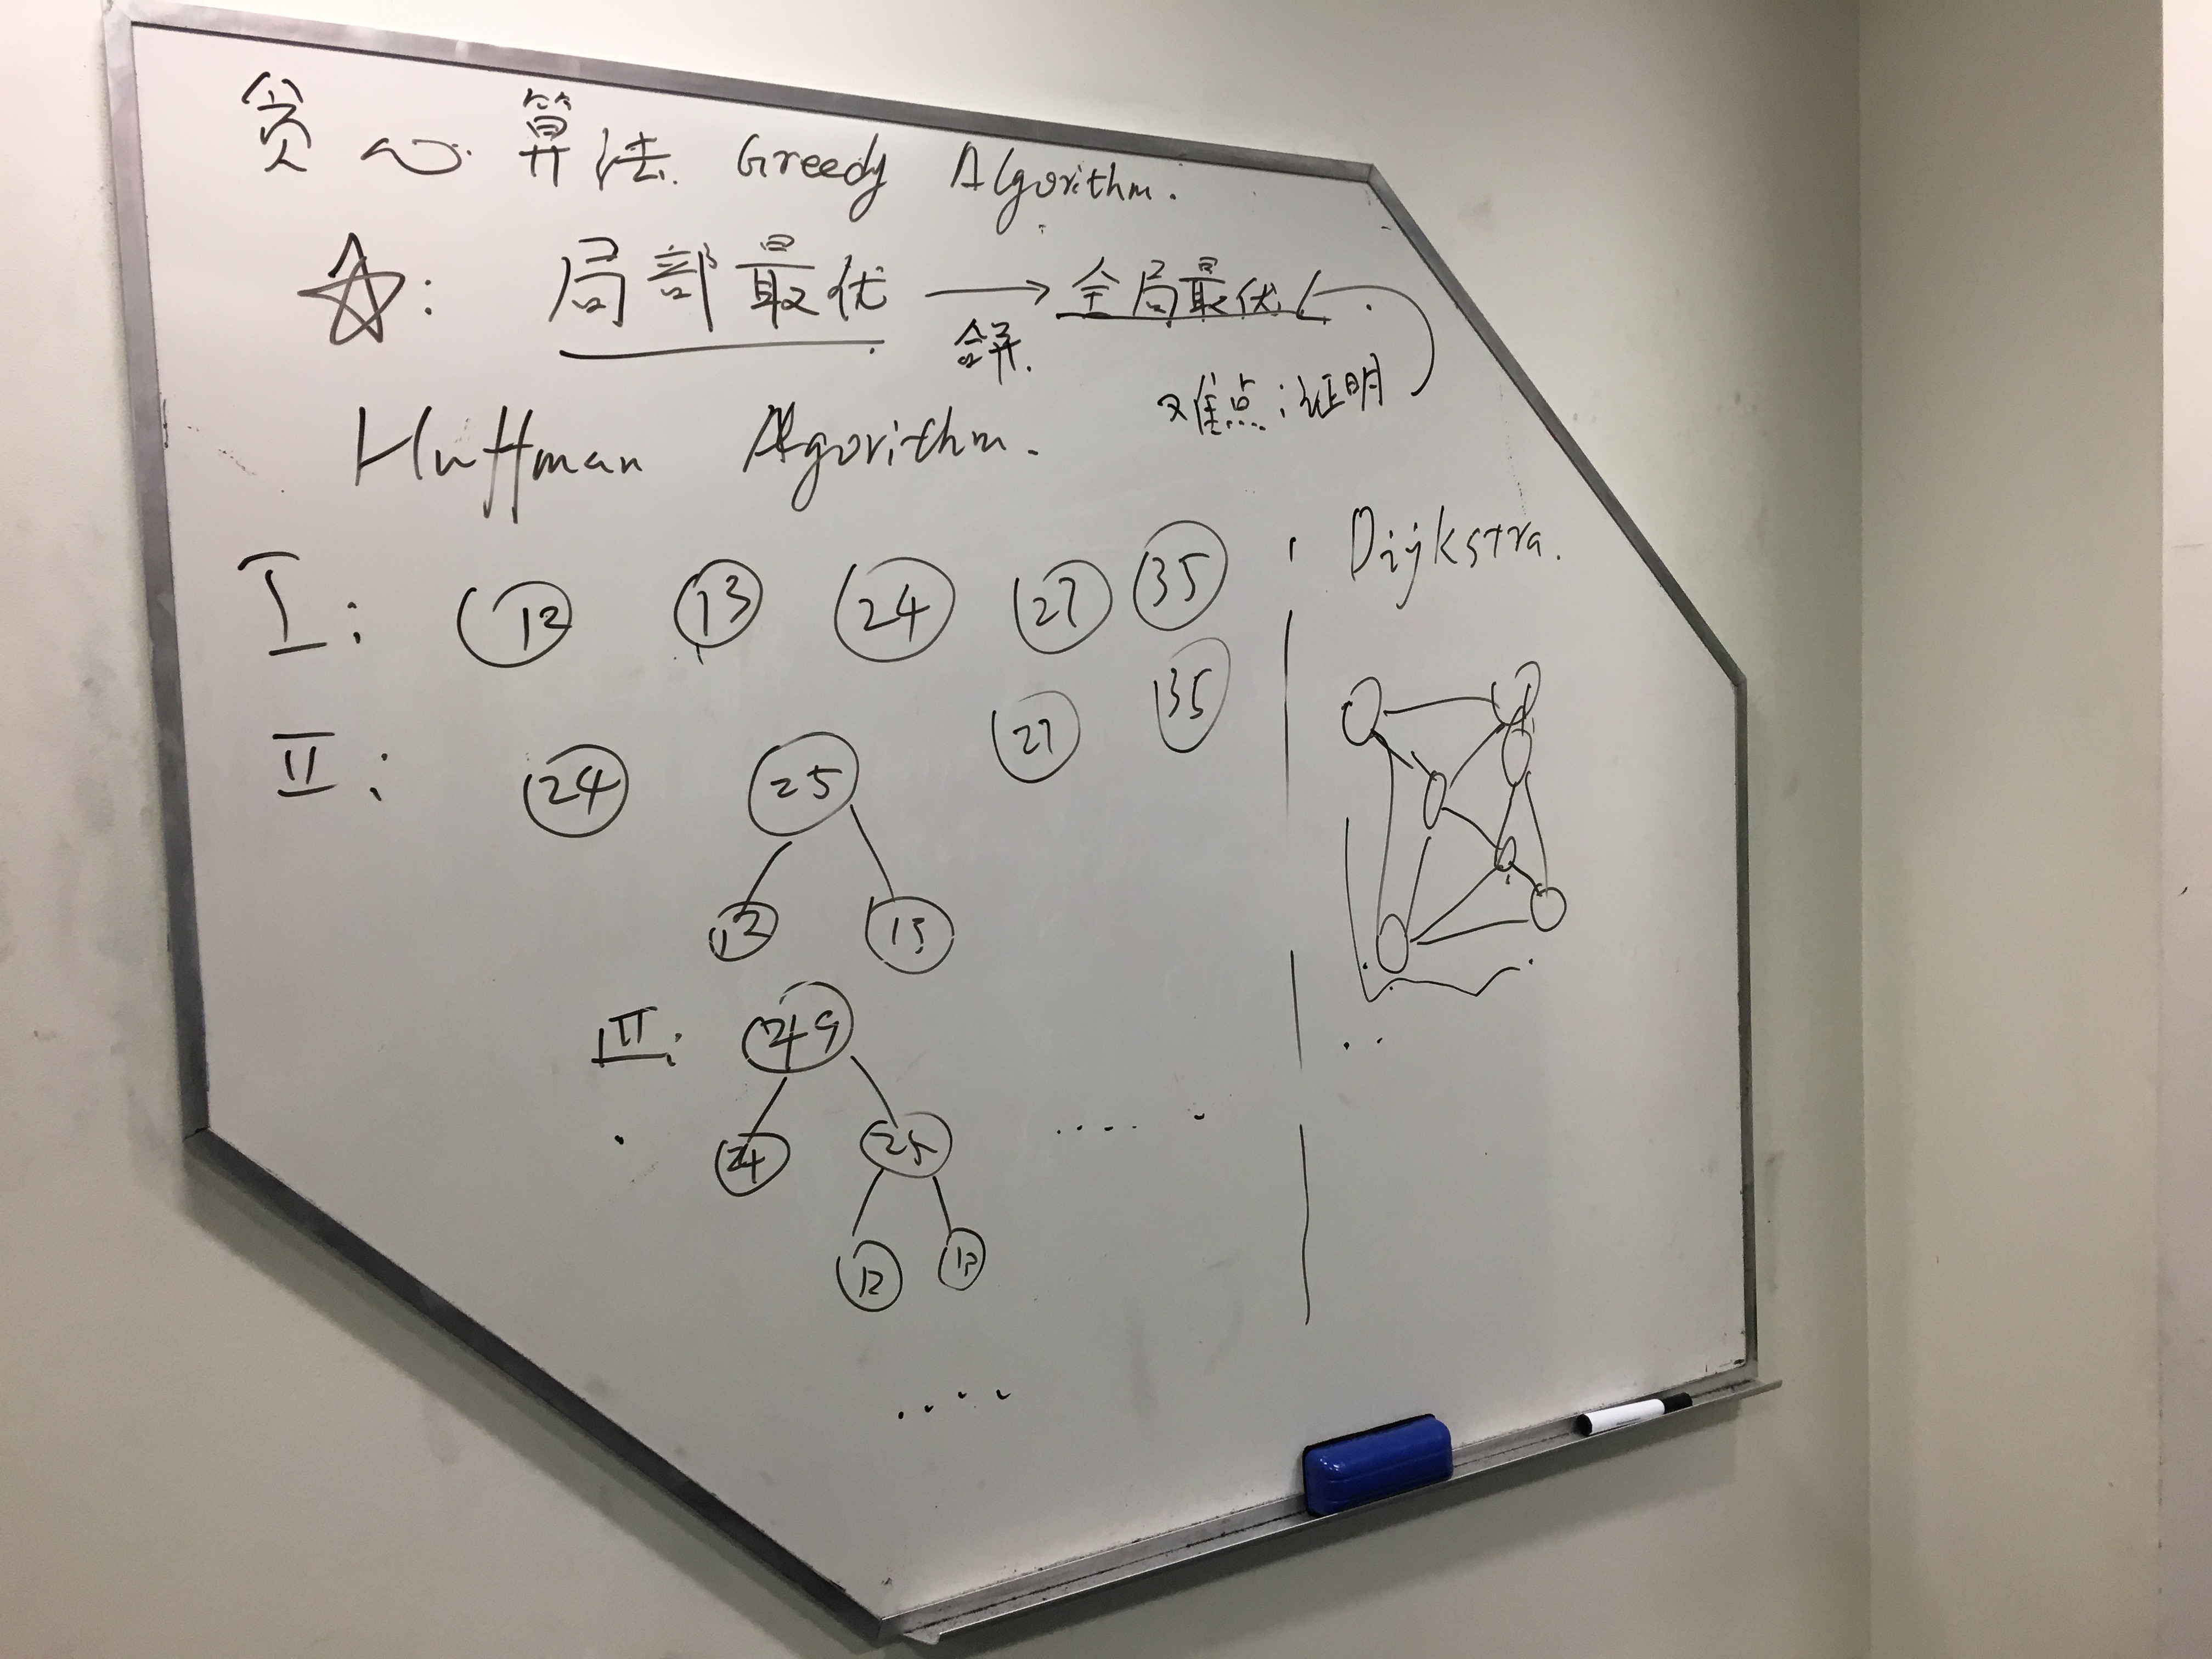 贪心算法. Greedy Algorithm.
☆: 局部最优 → 全局最优
合并.
难点: 证明
Huffman Algorithm.
I: 12 13 24 27 35
Dijkstra.
II: 24 25 27 35
12 13
III: 49
24 25 .....
12 13
....